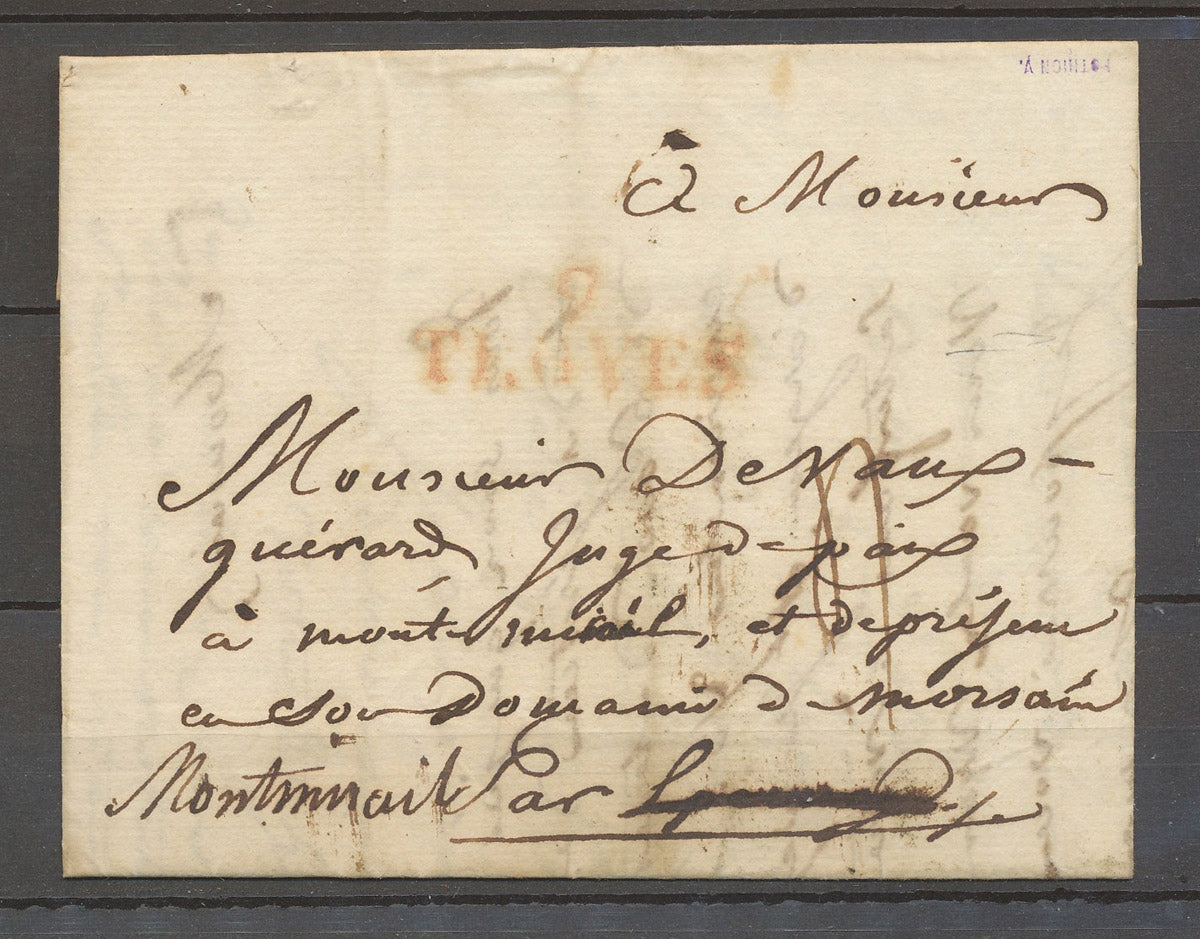 à Monsieur
9
TROYES
Monsieur De Vaux-
quérard Juge de paix
à montmirail, et de présent
en son Domaine de morsain
Montmirail Par